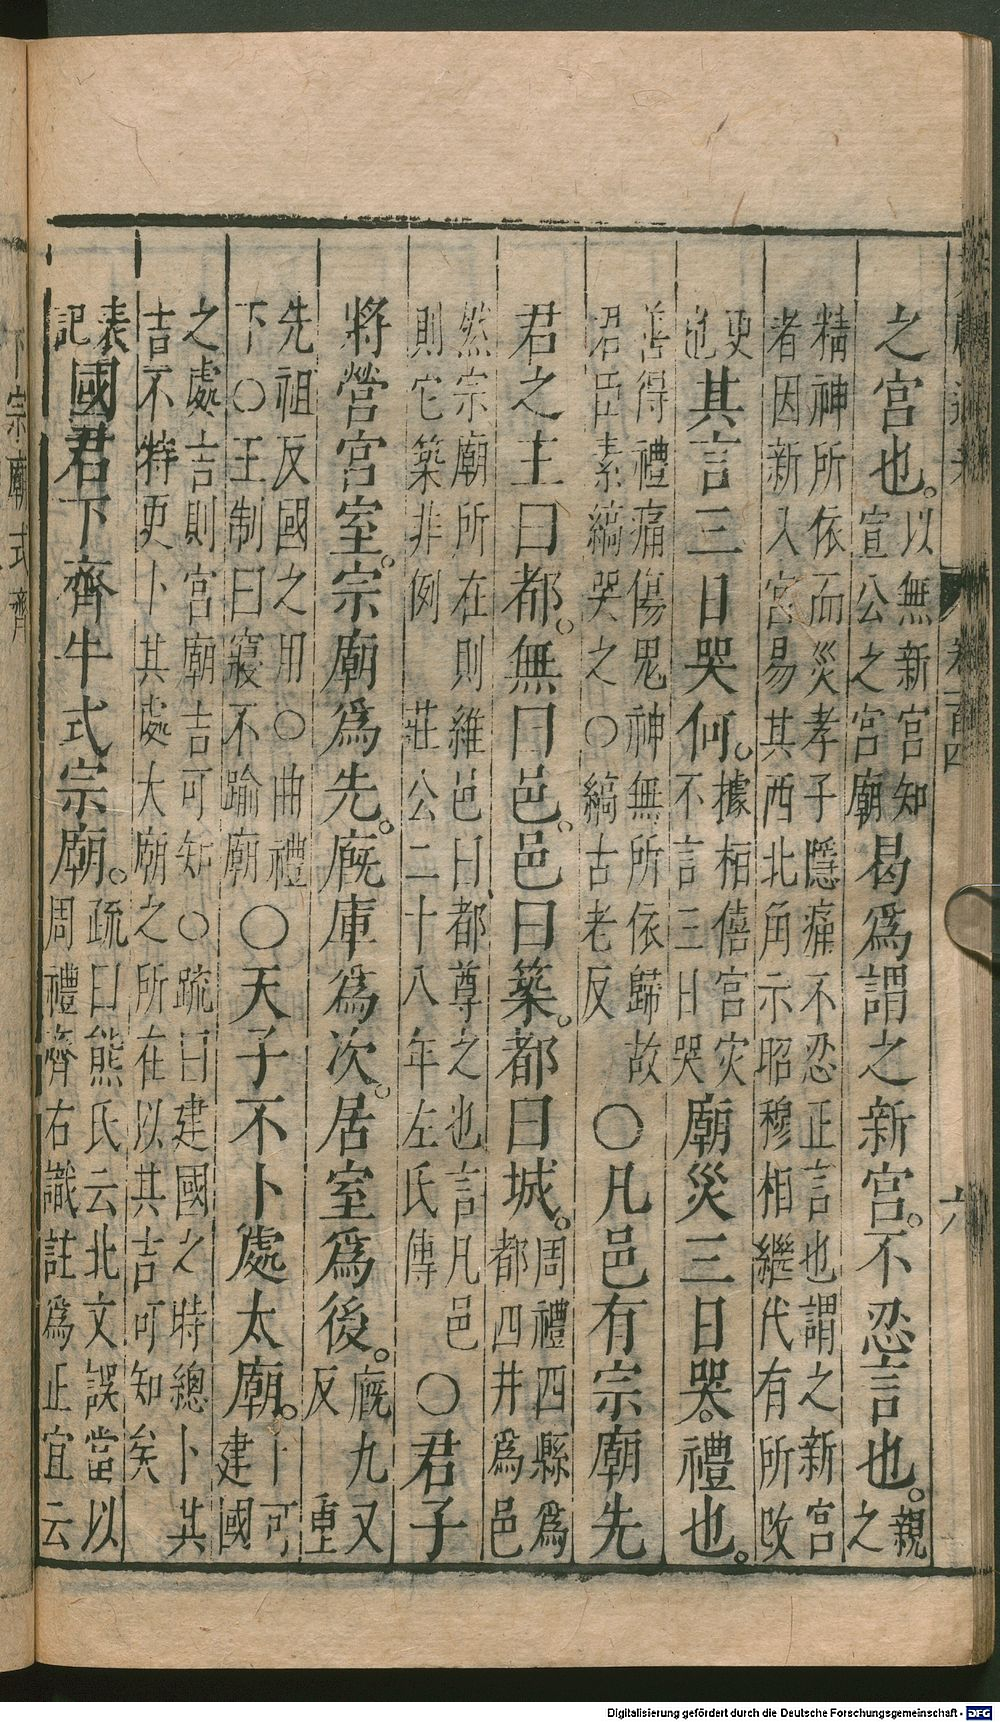 卷百四
六
之宮也。以無新宮知宣公之宮廟曷爲謂之新宮。不忍言也。親之
精神所依而災孝子隱痛不忍正言也謂之新宮
者因新入宮易其西北角示昭穆相繼代有所攺
更也其言三日哭何。據桓僖宮灾不言三日哭廟災三日哭。禮也。
善得禮痛傷鬼神無所依歸故君臣素縞哭之○縞古老反○凡邑有宗廟先
君之主曰都。無曰邑。邑曰築。都曰城。周禮四縣爲都四井爲邑
然宗廟所在則雖邑曰都尊之也言凡邑則它築非例 莊公二十八年左氏傳○君子
將營宮室。宗廟爲先。廐庫爲次。居室爲後。廐九又反 重
先祖反國之用○曲禮下○王制曰寢不踰廟○天子不卜處太廟。卜可建國
之處言則宮廟吉可知○疏曰建國之時總卜其
吉不特更卜其處大廟之所在以其吉可知矣
表記國君下齊牛式宗廟。疏曰熊氏云北文誤當以周禮齊右識註爲正宜云
下宗廟式齊
Digitalisierung gefördert durch die Deutsche Forschungsgemeinschaft - DFG